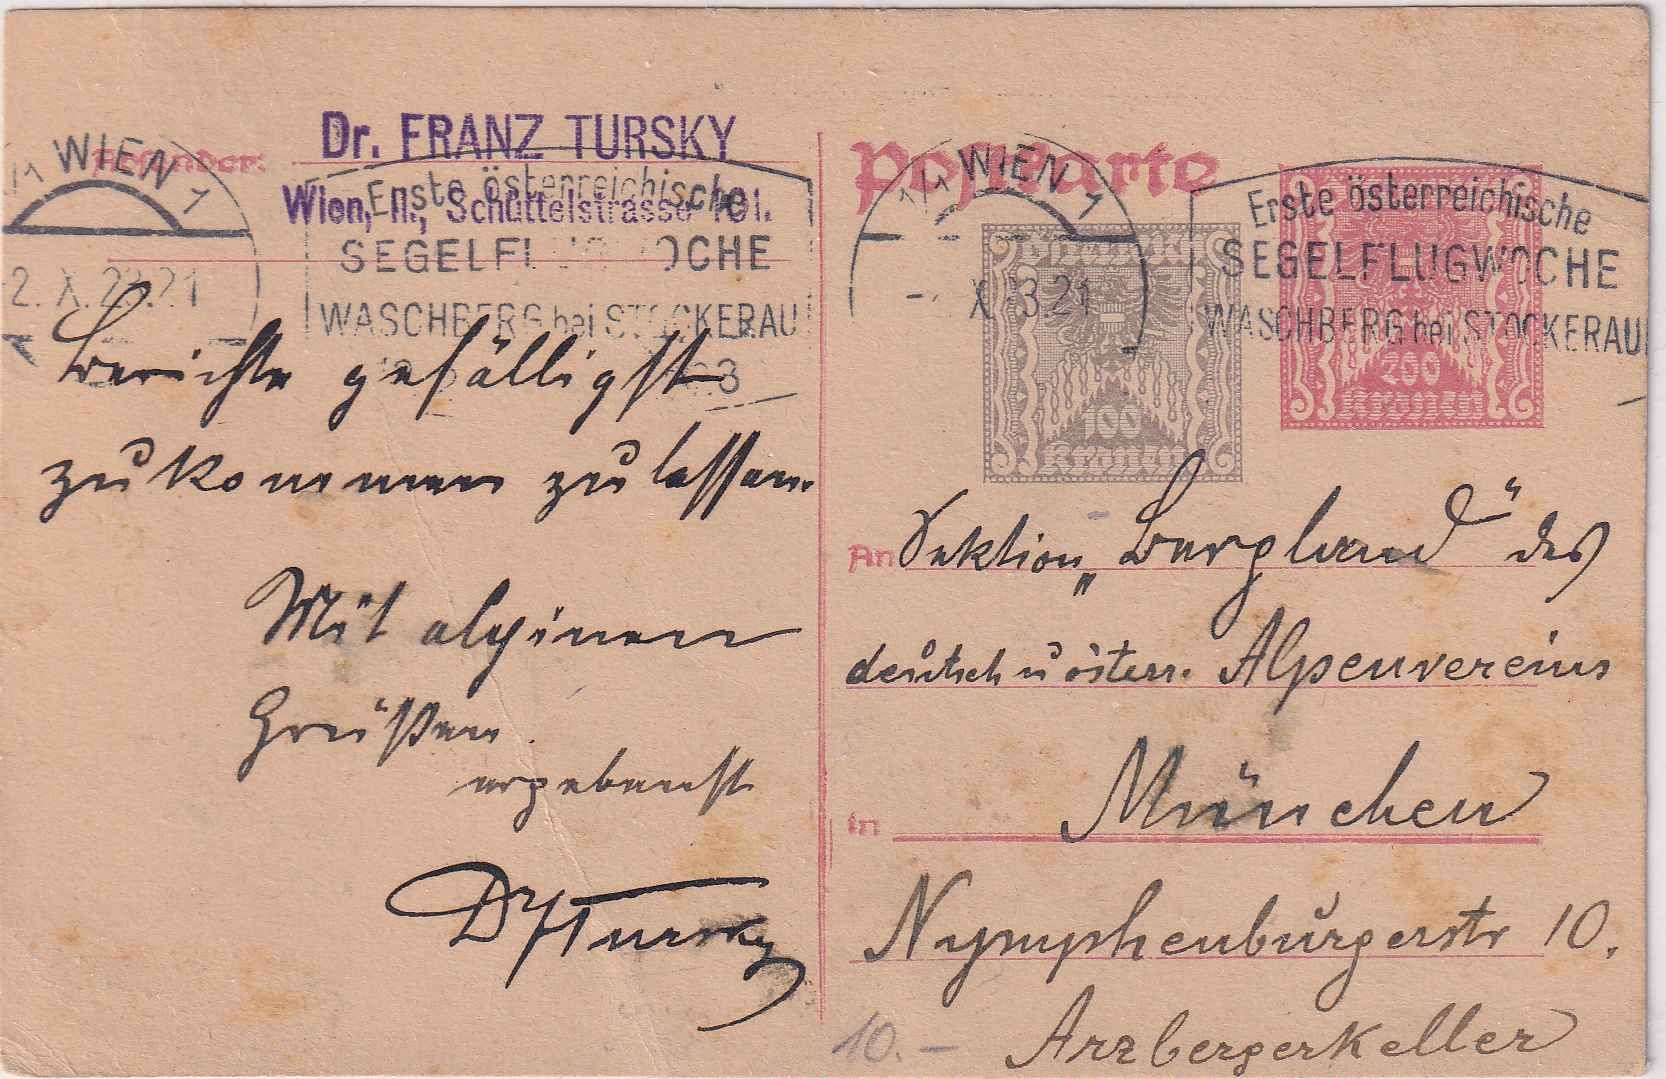 Dr. FRANZ TURSKY
Absender:
Wien, II., Schüttelstrasse 101.
1/1 WIEN 1
2. X. 23.21
Erste österreichische
SEGELFLUGWOCHE
WASCHBERG bei STOCKERAU
Berichte gefälligst
zukommen zu lassen.
Mit alpinen
Grüßen
ergebenst
Dr Tursky
Postkarte
1/1 WIEN 1
X 3.21
Erste österreichische
SEGELFLUGWOCHE
WASCHBERG bei STOCKERAU
100
Kronen
200
Kronen
An Sektion „Bergland" des
deutsch u österr. Alpenvereins
in München
Nymphenburgerstr 10.
Arzbergerkeller
10.—